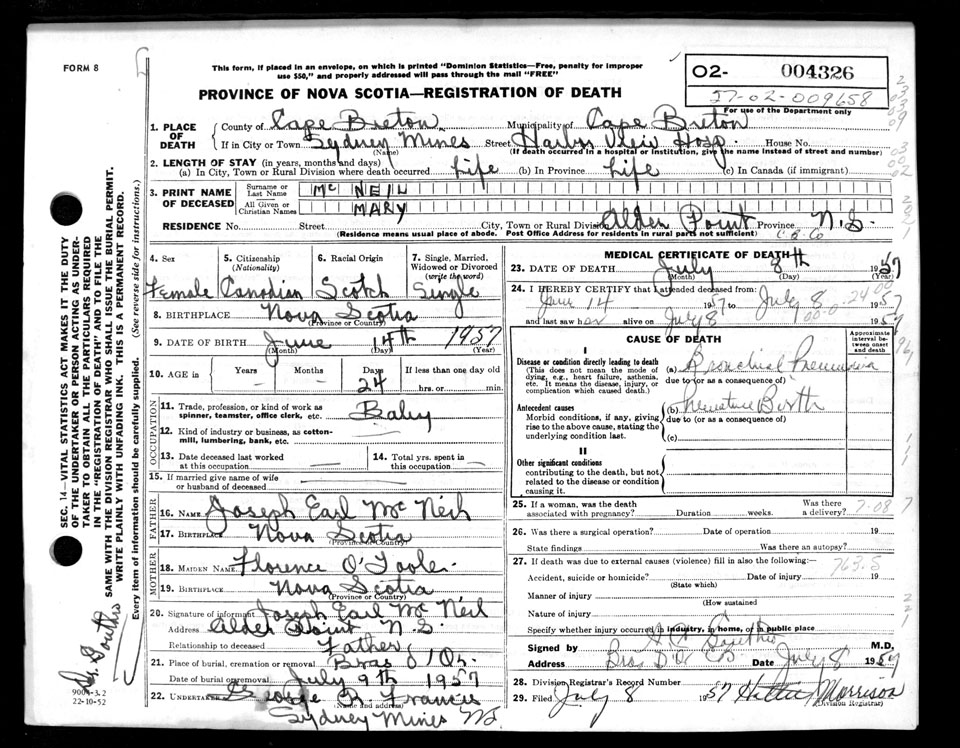 FORM 8
This form, if placed in an envelope, on which is printed "Dominion Statistics—Free, penalty for improper
use $50," and properly addressed will pass through the mail "FREE"
PROVINCE OF NOVA SCOTIA—REGISTRATION OF DEATH
02- 004326
57-02-009658
For use of the Department only
SEC. 14—VITAL STATISTICS ACT MAKES IT THE DUTY
OF THE UNDERTAKER OR PERSON ACTING AS UNDER-
TAKER TO OBTAIN ALL THE PARTICULARS REQUIRED
IN THE "REGISTRATION OF DEATH" AND TO FILE THE
SAME WITH THE DIVISION REGISTRAR WHO SHALL ISSUE THE BURIAL PERMIT.
WRITE PLAINLY WITH UNFADING INK. THIS IS A PERMANENT RECORD.
Every item of information should be carefully supplied. (See reverse side for instructions.)
1. PLACE OF DEATH
County of Cape Breton Municipality of Cape Breton
If in City or Town Sydney Mines Street Harbor View Hosp. House No.
(Name) (If death occurred in a hospital or institution, give the name instead of street and number)
2. LENGTH OF STAY (in years, months and days)
(a) In City, Town or Rural Division where death occurred Life (b) In Province Life (c) In Canada (if immigrant)
3. PRINT NAME OF DECEASED
Surname or Last Name Mc NEIL
All Given or Christian Names MARY
RESIDENCE No. Street City, Town or Rural Division Alder Point Province N.S.
(Residence means usual place of abode. Post Office Address for residents in rural parts not sufficient) C B Co
4. Sex 5. Citizenship (Nationality) 6. Racial Origin 7. Single, Married, Widowed or Divorced (write the word)
Female Canadian Scotch Single
8. BIRTHPLACE Nova Scotia
(Province or Country)
9. DATE OF BIRTH June 14th 1957
(Month) (Day) (Year)
10. AGE in Years Months Days If less than one day old
— — 24 hrs. or min.
OCCUPATION
11. Trade, profession, or kind of work as spinner, teamster, office clerk, etc. Baby
12. Kind of industry or business, as cotton-mill, lumbering, bank, etc.
13. Date deceased last worked at this occupation
14. Total yrs. spent in this occupation
15. If married give name of wife or husband of deceased
FATHER
16. NAME Joseph Earl Mc Neil
17. BIRTHPLACE Nova Scotia
(Province or Country)
MOTHER
18. MAIDEN NAME Florence O'Toole
19. BIRTHPLACE Nova Scotia
(Province or Country)
20. Signature of informant Joseph Earl Mc Neil
Address Alder Point N.S.
Relationship to deceased Father
21. Place of burial, cremation or removal Bras d'Or
Date of burial or removal July 9th 1957
22. UNDERTAKER George R. Francis
(Name and address)
Sydney Mines NS
9000-3.2
22-10-52
MEDICAL CERTIFICATE OF DEATH
23. DATE OF DEATH July 8th 1957
(Month) (Day) (Year)
24. I HEREBY CERTIFY that I attended deceased from:
June 14 1957 to July 8 1957
and last saw her alive on July 8 1957
CAUSE OF DEATH
Approximate interval between onset and death
I
Disease or condition directly leading to death
(This does not mean the mode of dying, e.g., heart failure, asthenia, etc. It means the disease, injury, or complication which caused death.)
(a) Bronchial Pneumonia
due to (or as a consequence of)
Antecedent causes
Morbid conditions, if any, giving rise to the above cause, stating the underlying condition last.
(b) Premature Birth
due to (or as a consequence of)
(c)
II
Other significant conditions
contributing to the death, but not related to the disease or condition causing it.
25. If a woman, was the death associated with pregnancy? Duration weeks. Was there a delivery?
26. Was there a surgical operation? Date of operation 19
State findings Was there an autopsy?
27. If death was due to external causes (violence) fill in also the following:— 763.5
Accident, suicide or homicide? Date of injury 19
(State which)
Manner of injury
(How sustained)
Nature of injury
Specify whether injury occurred in industry, in home, or in public place
Signed by M.D.
Address Bras D'Or CB Date July 8 1957
28. Division Registrar's Record Number
29. Filed July 8 1957 Hattie Morrison
(Division Registrar)